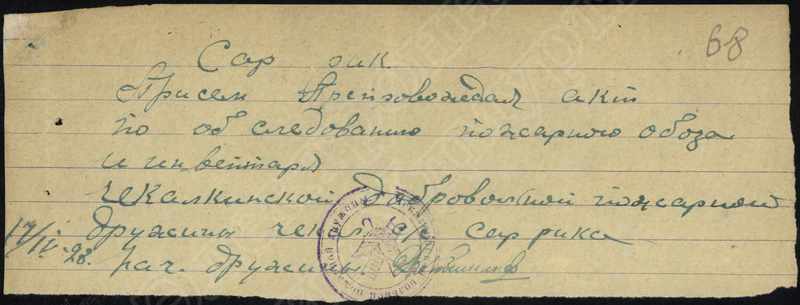 68
Сар рик
Присем Препровождая акт
по обследованию пожарного обоза
и инвентаря
Чкалкинской добровольной пожарной
дружины чекал с/с сар рика
17/IV-28.
Нач. дружины